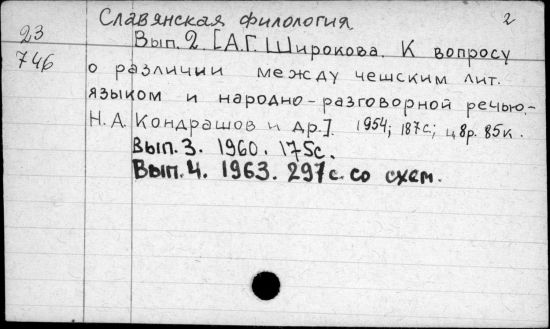 Славянская филология 2
23
746
Вып. 2. [А.Г. Широкова. К вопросу
о различии между чешским лит.
языком и народно-разговорной речью.-
Н.А. Кондрашов и др.]. 1954; 187с.; ц 8р. 85к.
Вып. 3. 1960. 175с.
Вып. 4. 1963. 297с. со схем.